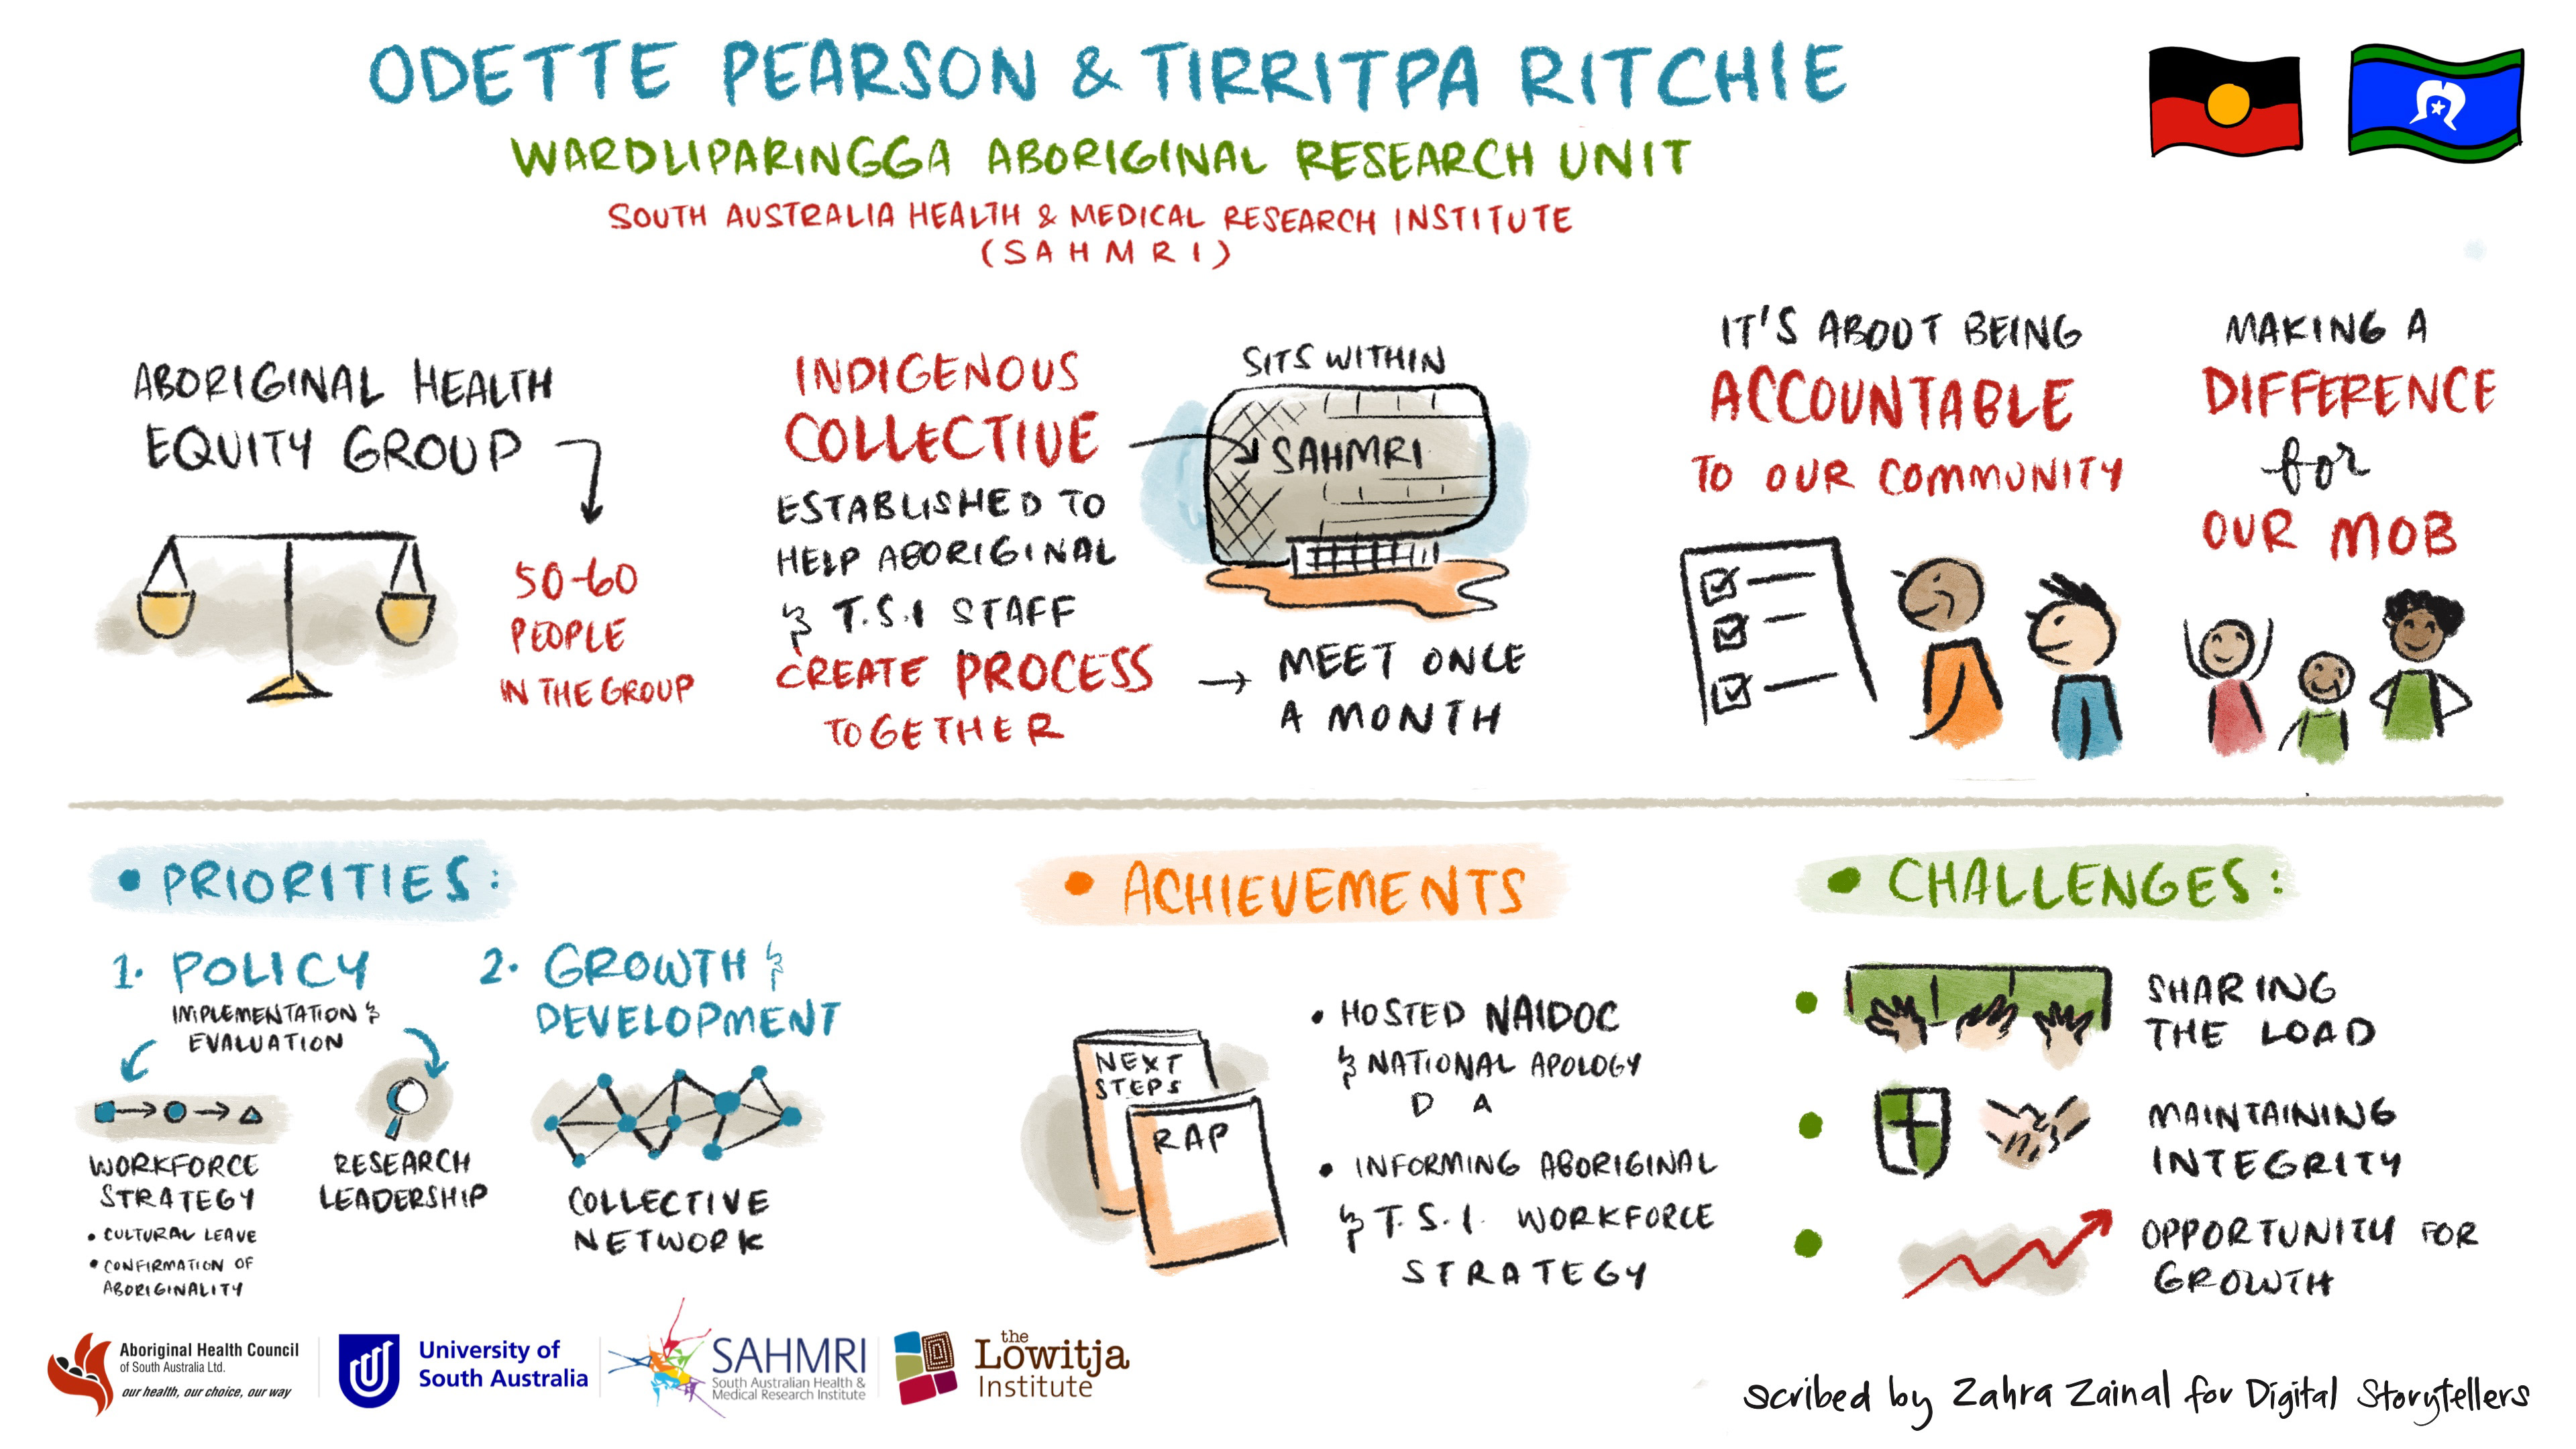 ODETTE PEARSON & TIRRITPA RITCHIE
WARDLIPARINGGA ABORIGINAL RESEARCH UNIT
SOUTH AUSTRALIA HEALTH & MEDICAL RESEARCH INSTITUTE
(SAHMRI)
ABORIGINAL HEALTH
EQUITY GROUP
50-60
PEOPLE
IN THE GROUP
INDIGENOUS
COLLECTIVE
ESTABLISHED TO
HELP ABORIGINAL
& T.S.I STAFF
CREATE PROCESS
TOGETHER
SITS WITHIN
SAHMRI
→ MEET ONCE
A MONTH
IT'S ABOUT BEING
ACCOUNTABLE
TO OUR COMMUNITY
MAKING A
DIFFERENCE
for
OUR MOB
• PRIORITIES:
1. POLICY
IMPLEMENTATION &
EVALUATION
WORKFORCE
STRATEGY
• CULTURAL LEAVE
• CONFIRMATION OF
ABORIGINALITY
RESEARCH
LEADERSHIP
2. GROWTH &
DEVELOPMENT
COLLECTIVE
NETWORK
• ACHIEVEMENTS
NEXT
STEPS
RAP
• HOSTED NAIDOC
& NATIONAL APOLOGY
D A
• INFORMING ABORIGINAL
& T.S.I. WORKFORCE
STRATEGY
• CHALLENGES:
• SHARING
THE LOAD
• MAINTAINING
INTEGRITY
• OPPORTUNITY FOR
GROWTH
Aboriginal Health Council
of South Australia Ltd.
our health, our choice, our way
University of
South Australia
SAHMRI
South Australian Health &
Medical Research Institute
the
Lowitja
Institute
scribed by Zahra Zainal for Digital Storytellers